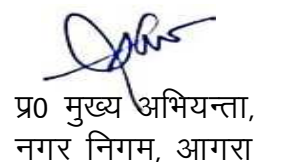 प्र0 मुख्य अभियन्ता,
नगर निगम, आगरा